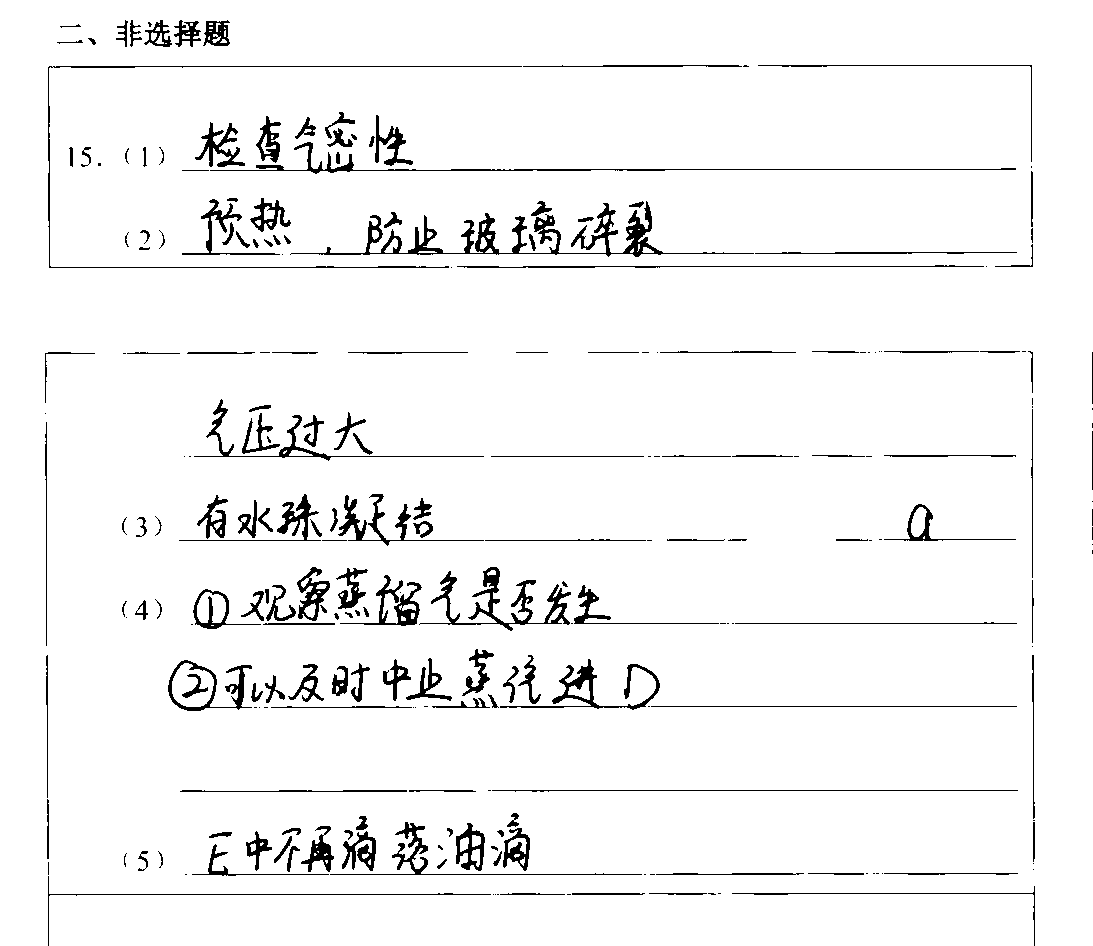 二、非选择题
15.（1） 检查气密性
（2） 预热，防止玻璃碎裂
气压过大
（3） 有水珠凝结 a
（4） ①观察蒸馏气是否发生
②可以及时中止蒸汽进D
（5） E中不再滴落油滴